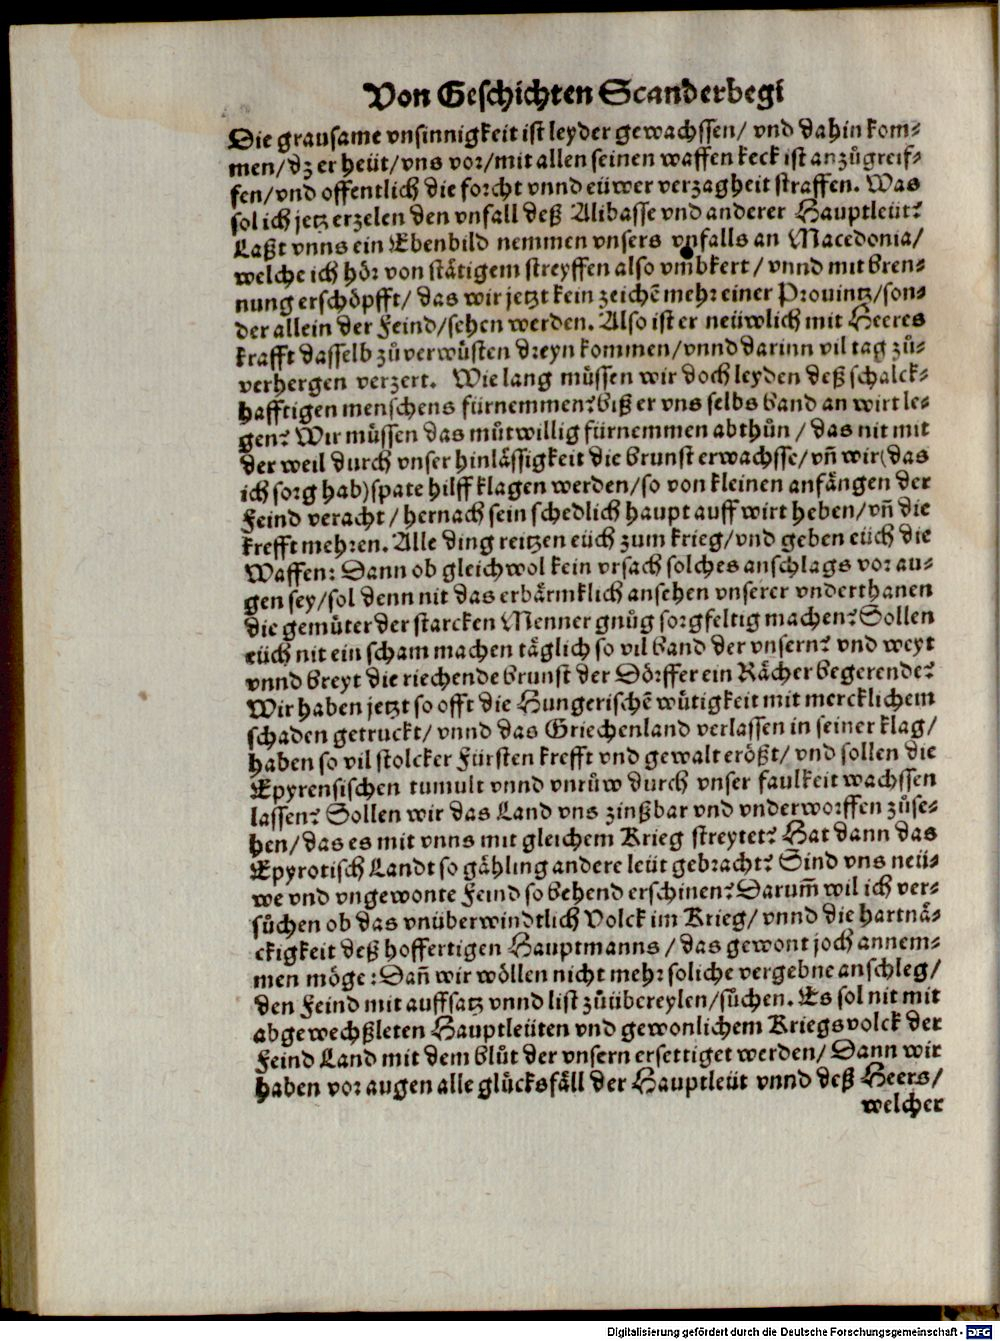 Von Geschichten Scanderbegi
Die grausame vnsinnigkeit ist leyder gewachssen/ vnd dahin kom-
men/dz er heüt/vns vor/mit allen seinen waffen keck ist anzůgreif-
fen/vnd offentlich die forcht vnnd eüwer verzagheit straffen. Was
sol ich jetz erzelen den vnfall deß Alibasse vnd anderer Hauptleüt?
Laßt vnns ein Ebenbild nemmen vnsers vnfalls an Macedonia/
welche ich hör von stätigem streyffen also vmbkert/ vnnd mit bren-
nung erschöpfft/ das wir jetzt kein zeichẽ mehr einer Prouintz/son-
der allein der Feind/sehen werden. Also ist er neüwlich mit Heeres
krafft dasselb zů verwüsten dreyn kommen/vnnd darinn vil tag zů-
verhergen verzert. Wie lang müssen wir doch leyden deß schalck-
hafftigen menschens fürnemmen? biß er vns selbs band an wirt le-
gen? Wir müssen das můtwillig fürnemmen abthůn / das nit mit
der weil durch vnser hinlässigkeit die brunst erwachsse/vñ wir(das
ich sorg hab)spate hilff klagen werden/so von kleinen anfängen der
Feind veracht/hernach sein schedlich haupt auff wirt heben/vñ die
krefft mehren. Alle ding reitzen eüch zum krieg/vnd geben eüch die
Waffen: Dann ob gleichwol kein vrsach solches anschlags vor au-
gen sey/sol denn nit das erbärmklich ansehen vnserer vnderthanen
die gemüter der starcken Menner gnůg sorgfeltig machen? Sollen
eüch nit ein scham machen täglich so vil band der vnsern? vnd weyt
vnnd breyt die riechende brunst der Dörffer ein Rächer begerende?
Wir haben jetzt so offt die Hungerischẽ wütigkeit mit mercklichem
schaden getruckt/ vnnd das Griechenland verlassen in seiner klag/
haben so vil stolcker Fürsten krefft vnd gewalt erößt/ vnd sollen die
Epyrensischen tumult vnnd vnrůw durch vnser faulkeit wachssen
lassen? Sollen wir das Land vns zinßbar vnd vnderworffen zůse-
hen/das es mit vnns mit gleichem Krieg streytet? Hat dann das
Epyrotisch Landt so gähling andere leüt gebracht? Sind vns neü-
we vnd vngewonte Feind so behend erschinen? Darum̃ wil ich ver-
sůchen ob das vnüberwindtlich Volck im Krieg/ vnnd die hartnä-
ckigkeit deß hoffertigen Hauptmanns/das gewont joch annem-
men möge: Dañ wir wöllen nicht mehr soliche vergebne anschleg/
den Feind mit auffsatz vnnd list zůübereylen/sůchen. Es sol nit mit
abgewechßleten Hauptleüten vnd gewonlichem Kriegsvolck der
Feind Land mit dem blůt der vnsern ersettiget werden/ Dann wir
haben vor augen alle glücksfäll der Hauptleüt vnnd deß Heers/
welcher
Digitalisierung gefördert durch die Deutsche Forschungsgemeinschaft - DFG